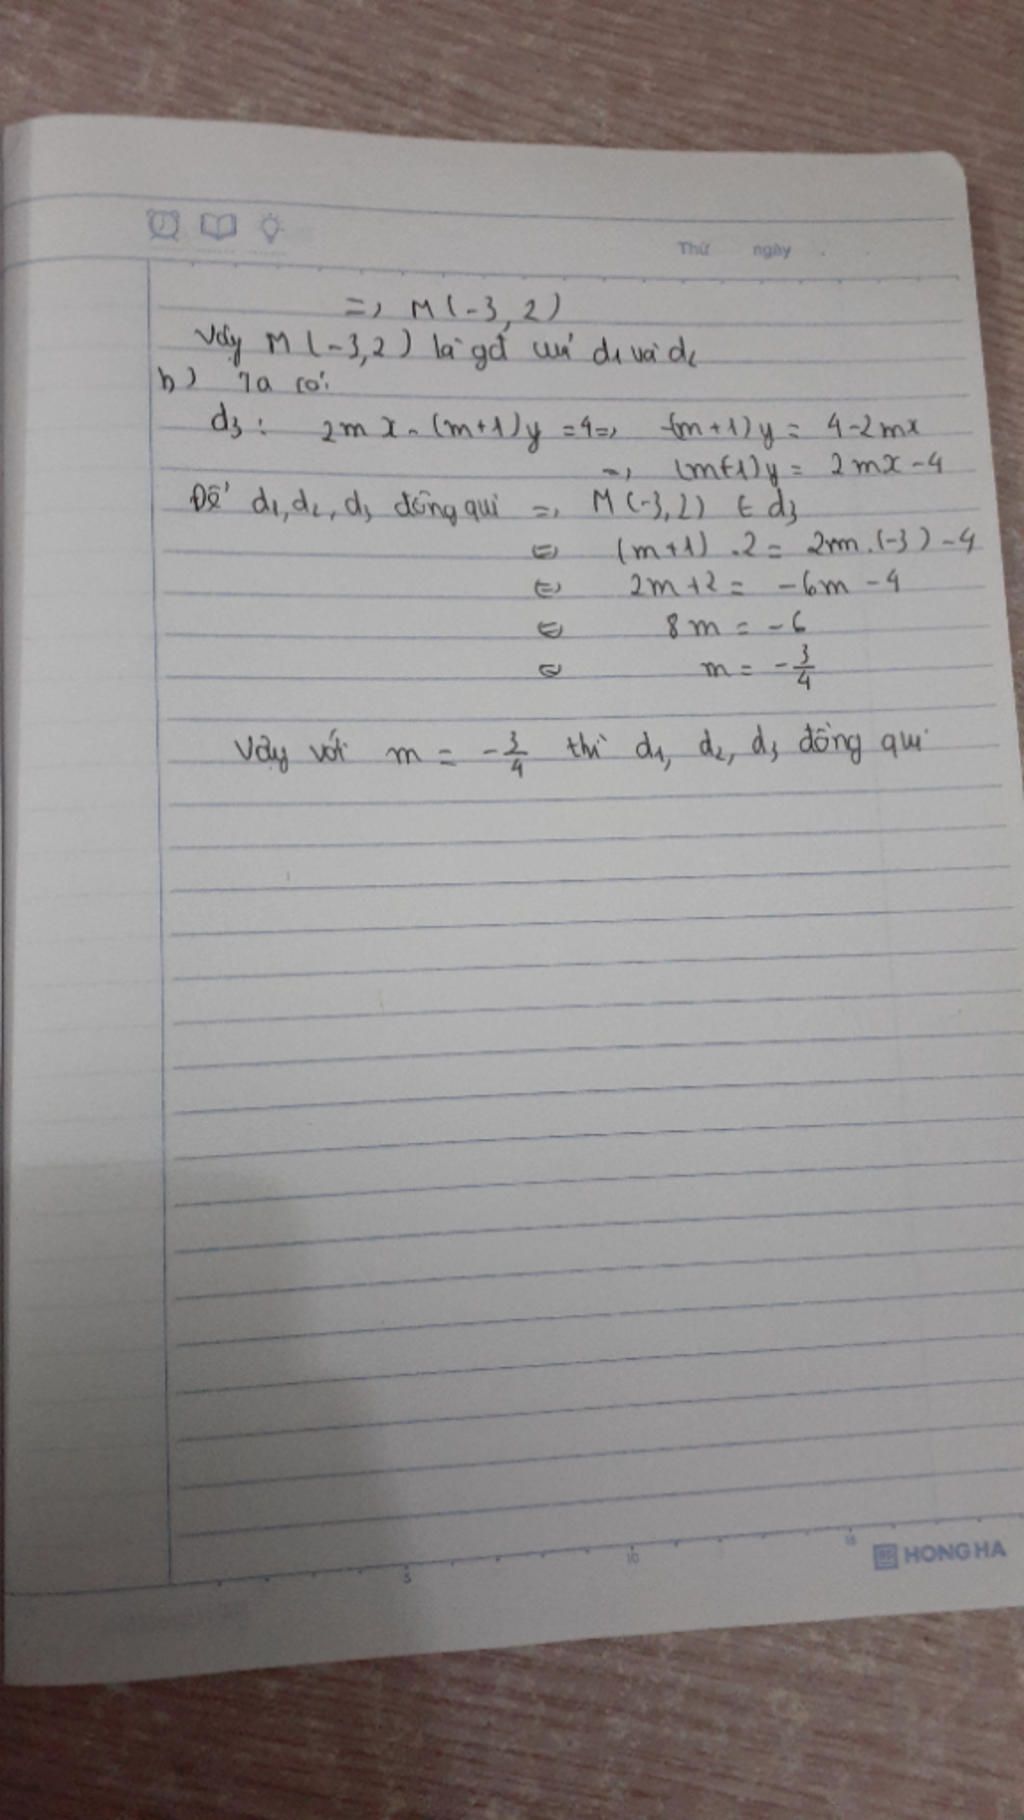 Thứ ngày
=> M(-3, 2)
Vậy M(-3,2) là gđ của d1 và d2
b) Ta có:
d3: 2mx - (m+1)y = 4 => -(m+1)y = 4-2mx
=> (m+1)y = 2mx - 4
Để d1, d2, d3 đồng qui => M(-3,2) ∈ d3
⇔ (m+1) .2 = 2m.(-3) - 4
⇔ 2m+2 = -6m - 4
⇔ 8m = -6
⇔ m = -3/4
Vậy với m = -3/4 thì d1, d2, d3 đồng qui
5 10 15
HONG HA